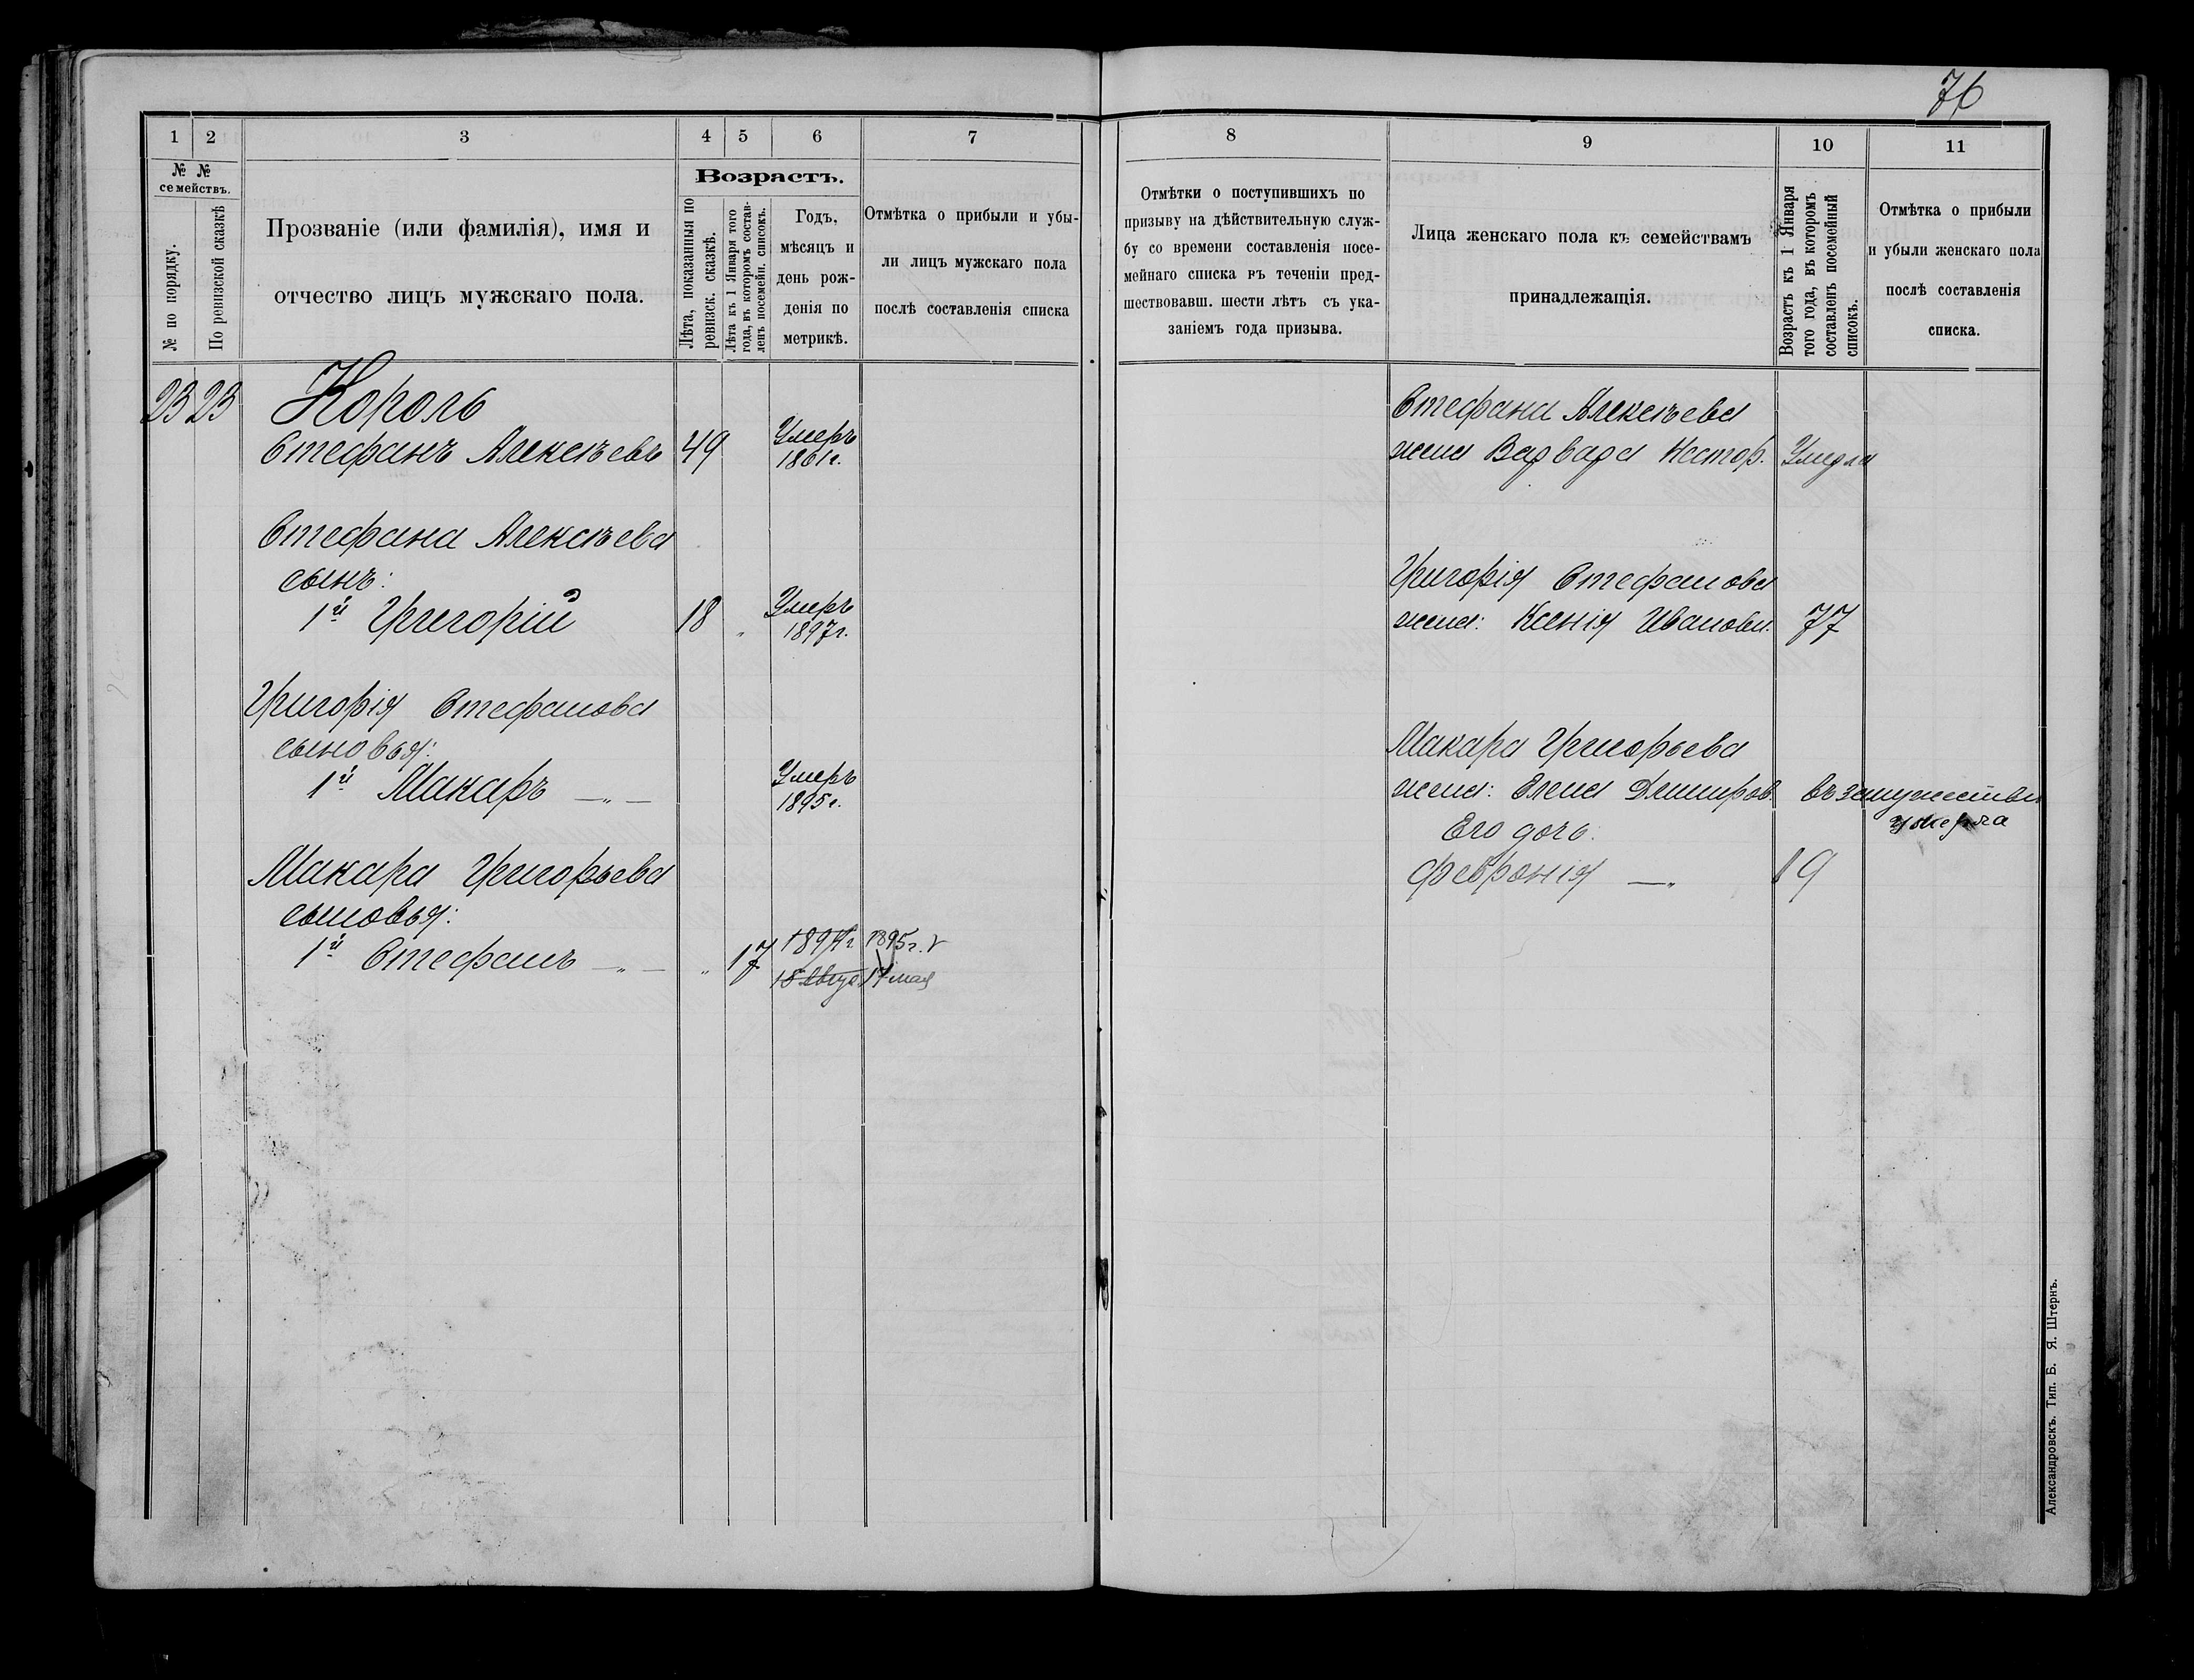 76
1 2 3 4 5 6 7
№ №
семействъ.
№ по порядку.
По ревизской сказкѣ
Прозваніе (или фамилія), имя и
отчество лицъ мужскаго пола.
Возрастъ.
Лѣта, показанныя по
ревизск. сказкѣ.
Лѣта къ 1 Января того
года, въ которомъ состав-
ленъ посемейн. списокъ.
Годъ,
мѣсяцъ и
день рож-
денія по
метрикѣ.
Отмѣтка о прибыли и убы-
ли лицъ мужскаго пола
послѣ составленія списка
23 23 Король
Стефанъ Алексѣевъ 49 Умеръ
1861 г.
Стефана Алексѣева
сынъ:
1й Григорій 18 „ Умеръ
1897 г.
Григорія Стефанова
сыновья:
1й Макаръ — „ — Умеръ
1895 г.
Макара Григорьева
сыновья:
1й Стефанъ — „ — „ 17 1894 г. 1895 г.
17 мая
8 9 10 11
Отмѣтки о поступившихъ по
призыву на дѣйствительную служ-
бу со времени составленія посе-
мейнаго списка въ теченіи пред-
шествовавш. шести лѣтъ съ ука-
заніемъ года призыва.
Лица женскаго пола къ семействамъ
принадлежащія.
Возрастъ къ 1 Января
того года, въ которомъ
составленъ посемейный
списокъ.
Отмѣтка о прибыли
и убыли женскаго пола
послѣ составленія
списка.
Стефана Алексѣева
жена Варвара Нестор. Умерла
Григорія Стефанова
жена: Ксенія Иванова. 77
Макара Григорьева
жена: Елена Дмитров. въ замужествѣ
умерла
Его дочь:
Февронія — „ 19
Александровскъ. Тип. Б. Я. Штернъ.